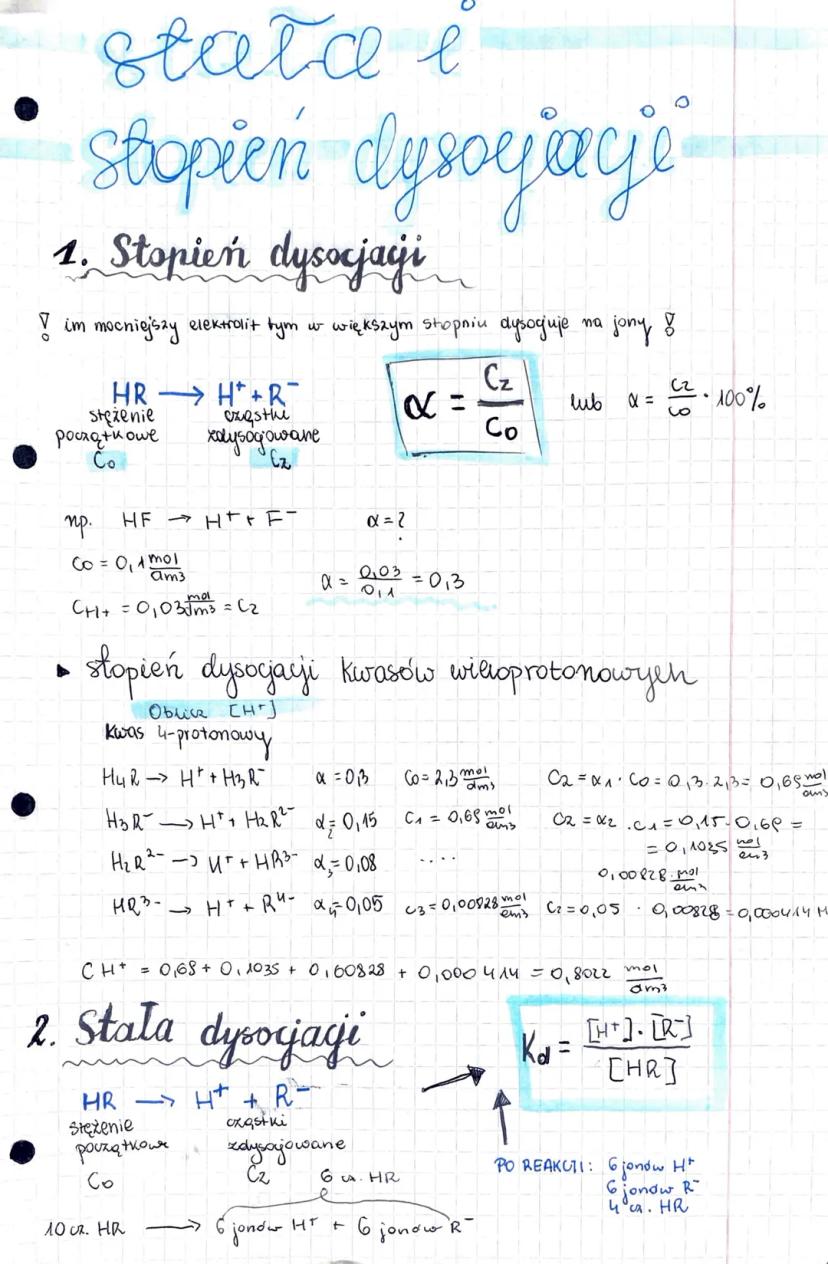 stała i
stopień dysocjacji
1. Stopień dysocjacji
! im mocniejszy elektrolit tym w większym stopniu dysocjuje na jony !
HR → H⁺ + R⁻
stężenie początkowe C₀
cząstki zdysocjowane Cz
α = Cz/C₀ lub α = Cz/C₀ · 100%
np. HF → H⁺ + F⁻ α = ?
C₀ = 0,1 mol/dm³
CH⁺ = 0,03 mol/dm³ = Cz
α = 0,03/0,1 = 0,3
▸ stopień dysocjacji kwasów wieloprotonowych
Oblicz [H⁺]
Kwas 4-protonowy
H₄R → H⁺ + H₃R⁻ α = 0,3 C₀ = 2,3 mol/dm³ Cz = α₁ · C₀ = 0,3 · 2,3 = 0,69 mol/dm³
H₃R⁻ → H⁺ + H₂R²⁻ α₂ = 0,15 C₁ = 0,69 mol/dm³ Cz = α₂ · C₁ = 0,15 · 0,69 =
= 0,1035 mol/dm³
H₂R²⁻ → H⁺ + HR³⁻ α₃ = 0,08 ....
0,00828 mol/dm³
HR³⁻ → H⁺ + R⁴⁻ α₄ = 0,05 C₃ = 0,00828 mol/dm³ Cz = 0,05 · 0,00828 = 0,000414 M
CH⁺ = 0,69 + 0,1035 + 0,00828 + 0,000414 = 0,8022 mol/dm³
2. Stała dysocjacji
Kd = [H⁺] · [R⁻] / [HR]
HR → H⁺ + R⁻
stężenie początkowe C₀
cząstki zdysocjowane Cz
6 cz. HR
10 cz. HR → 6 jonów H⁺ + 6 jonów R⁻
PO REAKCJI: 6 jonów H⁺
6 jonów R⁻
4 cz. HR